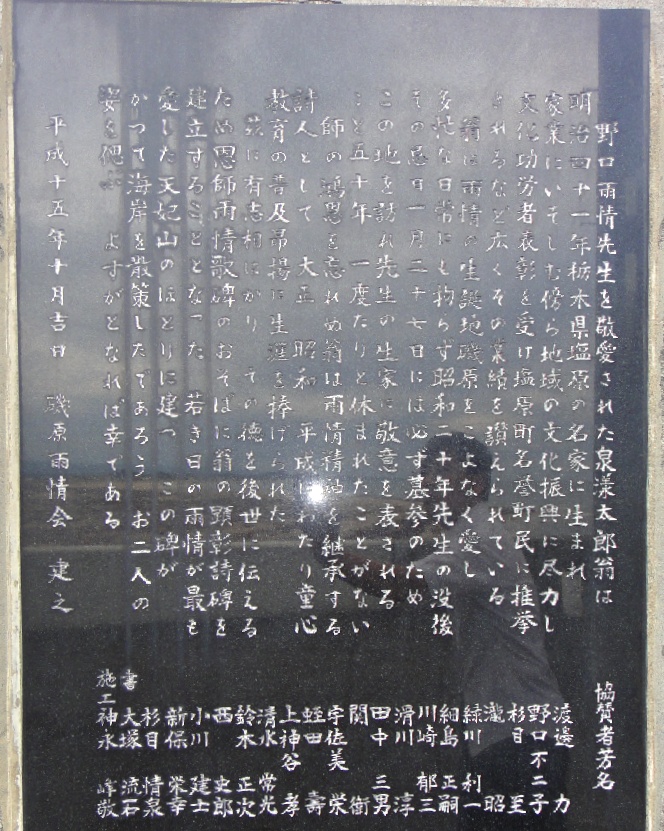 野口雨情先生を敬愛された泉漾太郎翁は
明治四十一年栃木県塩原の名家に生まれ
家業にいそしむ傍ら地域の文化振興に尽力し
文化功労者表彰を受け塩原町名誉町民に推挙
されるなど広くその業績を讃えられている
翁は雨情の生誕地磯原をこよなく愛し
多忙な日常にも拘らず昭和二十年先生の没後
その忌日一月二十七日には必ず墓参のため
この地を訪れ先生の生家に敬意を表される
こと五十年 一度たりと休まれたことがない
師の鴻恩を忘れぬ翁は雨情精神を継承する
詩人として 大正 昭和 平成にわたり童心
教育の普及昂揚に生涯を捧げられた
茲に有志相はかり その徳を後世に伝える
ため恩師雨情歌碑のおそばに翁の顕彰詩碑を
建立することとなった 若き日の雨情が最も
愛した天妃山のほとりに建つ この碑が
かつて海岸を散策したであろう お二人の
姿を偲ぶ よすがとなれば幸である
平成十五年十月吉日 磯原雨情会 建之
協賛者芳名
渡邊 力
野口不二子
杉目 至
瀧 昭
緑川 利一
細島 正嗣
川崎 郁三
滑川 淳
田中 三男
関 衛
宇佐美 栄
蛭田 壽
上神谷 孝
清水 常光
鈴木 正次
西 史郎
小川 建士
新保 栄幸
杉目 情泉
書 大塚 流石
施工 神永 峰敬